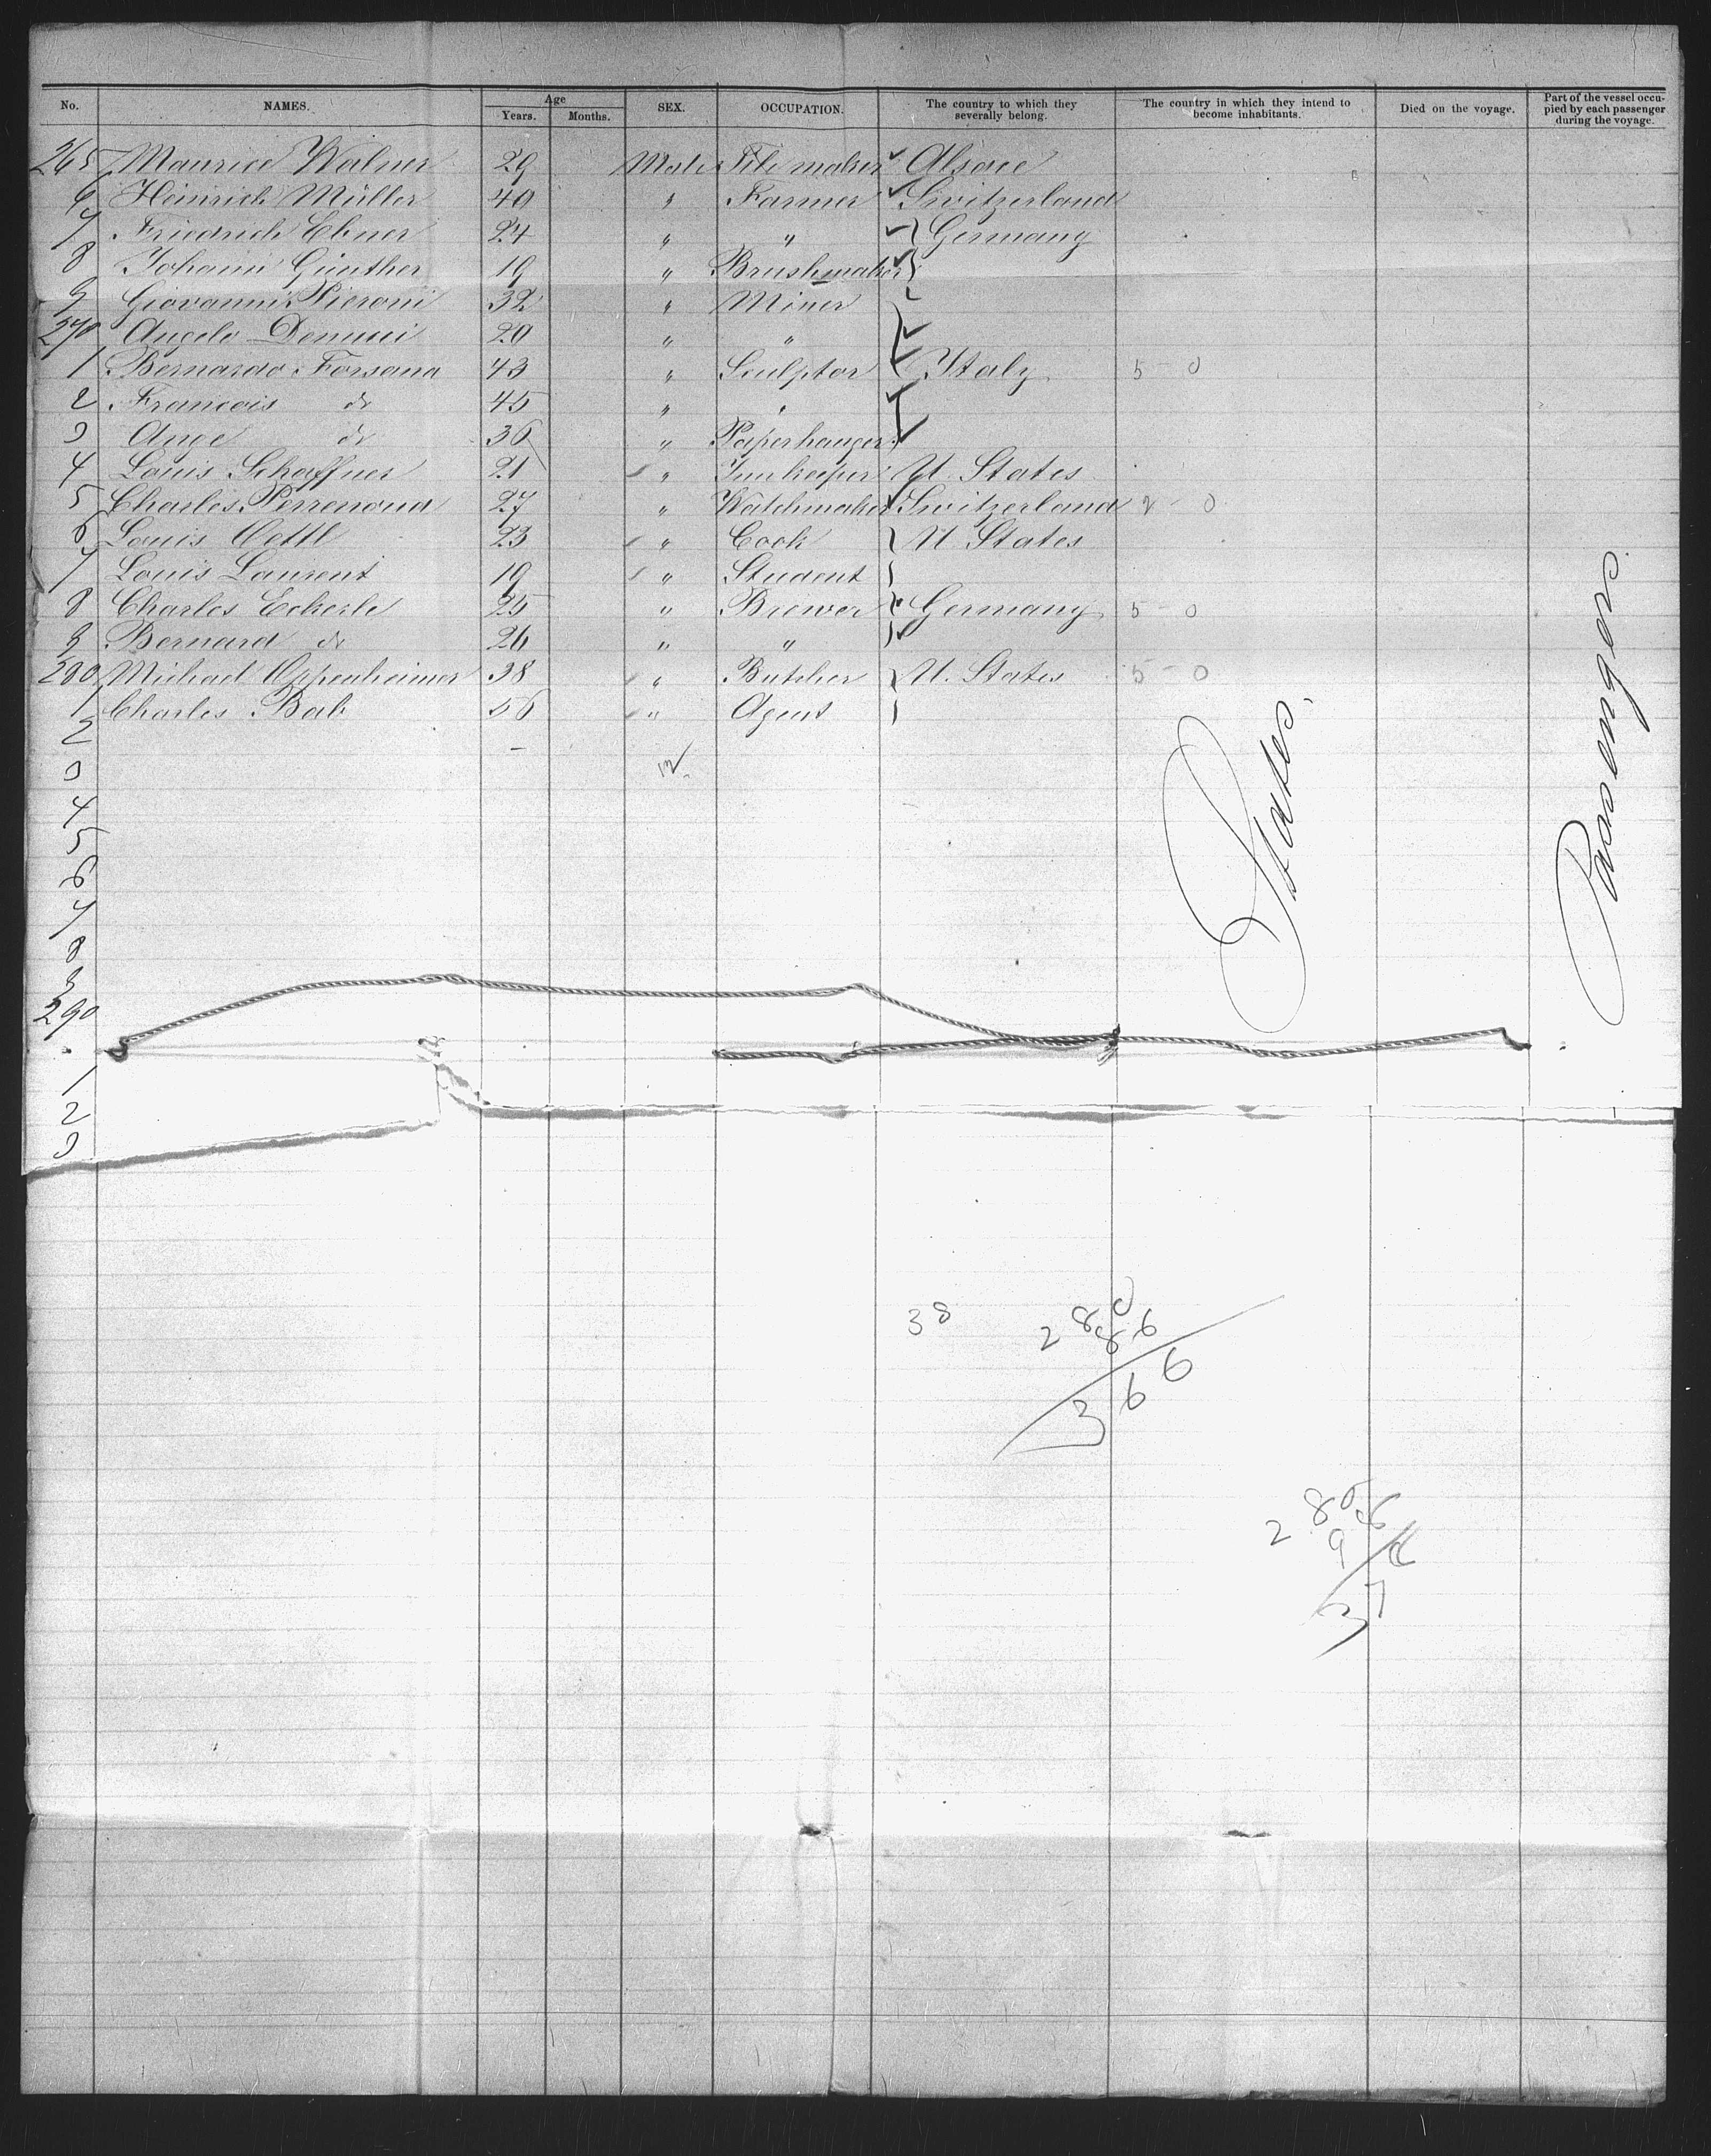 No. NAMES. Age Years. Months. SEX. OCCUPATION. The country to which they severally belong. The country in which they intend to become inhabitants. Died on the voyage. Part of the vessel occupied by each passenger during the voyage.
265 Maurice Walner 29 Male File maker Alsace
6 Heinrich Müller 40 " Farmer Switzerland
7 Friedrich Ebner 24 " " } Germany
8 Johann Günther 19 " Brushmaker }
9 Giovanni Pieroni 32 " Miner
270 Angelo 20 " "
1 Bernardo Forsana 43 " Sculptor Italy 5-0
2 Francois do 45 " "
3 Ange do 36 " Paperhanger
4 Louis Schaffner 21 " Innkeeper U. States
5 Charles Perrenoud 27 " Watchmaker Switzerland 2-0
6 Louis Oettl 23 " Cook } U. States
7 Louis Laurent 19 " Student }
8 Charles Eckerle 25 " Brewer } Germany 5-0
9 Bernard do 26 " " }
280 Michael Oppenheimer 38 " Butcher } U. States 5-0
1 Charles Bab 56 " Agent }
2
3
4
5
6
7
8
9
290
1
2
3
States.
Passengers.
38
280
86
366
280
96
37